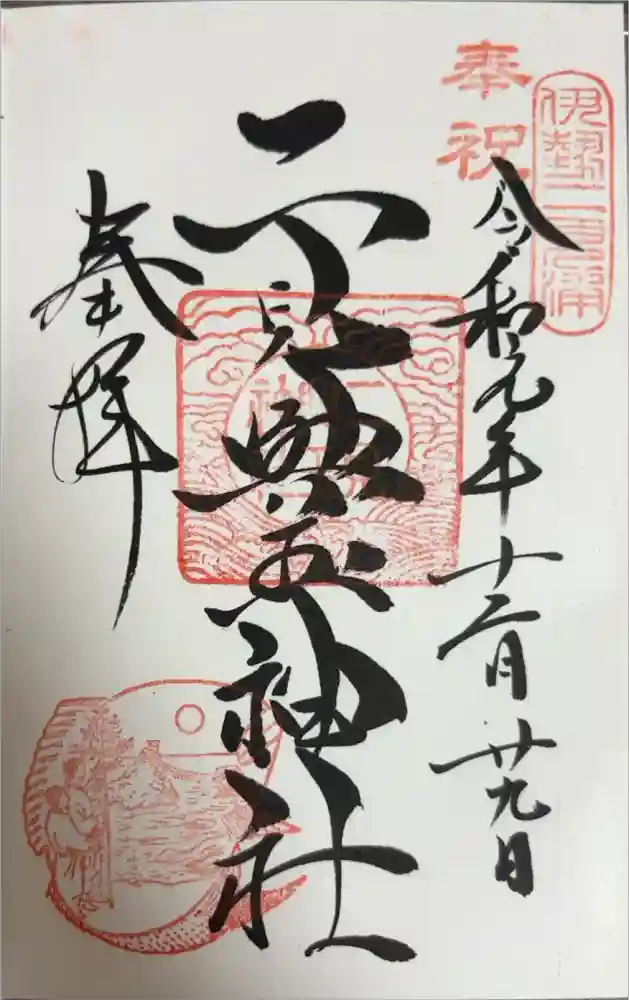 奉祝
伊勢二見浦
令和元年十二月廿九日
二見興玉神社
奉拝